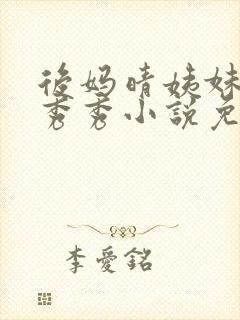 後妈晴姊妹
秀秀小說免
李愛銘